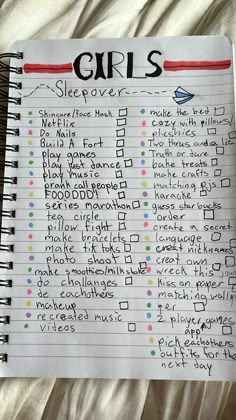 GIRLS
Sleepover
Skincare/Face Mask
Netflix
Do Nails
Build A Fort
play games
play just dance
play music
prank call people
FOOODDD!
series marathon
tea circle
pillow fight
make bracelets
make tik toks
photo shoot
make smoothies/milkshake
do challanges
de eachothers
makeup
recreated music
videos
make the bed
cozy with pillows/
plushies
Two thrus and a lie
Truth or dare
bake treats
make crafts
matching pjs
karaoke
guess starbucks
order
create a secret
language
create nicknames
create own
wreck this
Kiss on paper
matching wall
per
2 player games
app
pick eachothers
outfits for the
next day